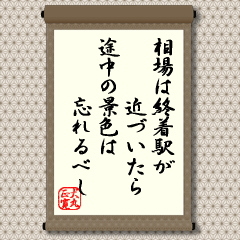 相場は終着駅が
近づいたら
途中の景色は
忘れるべし